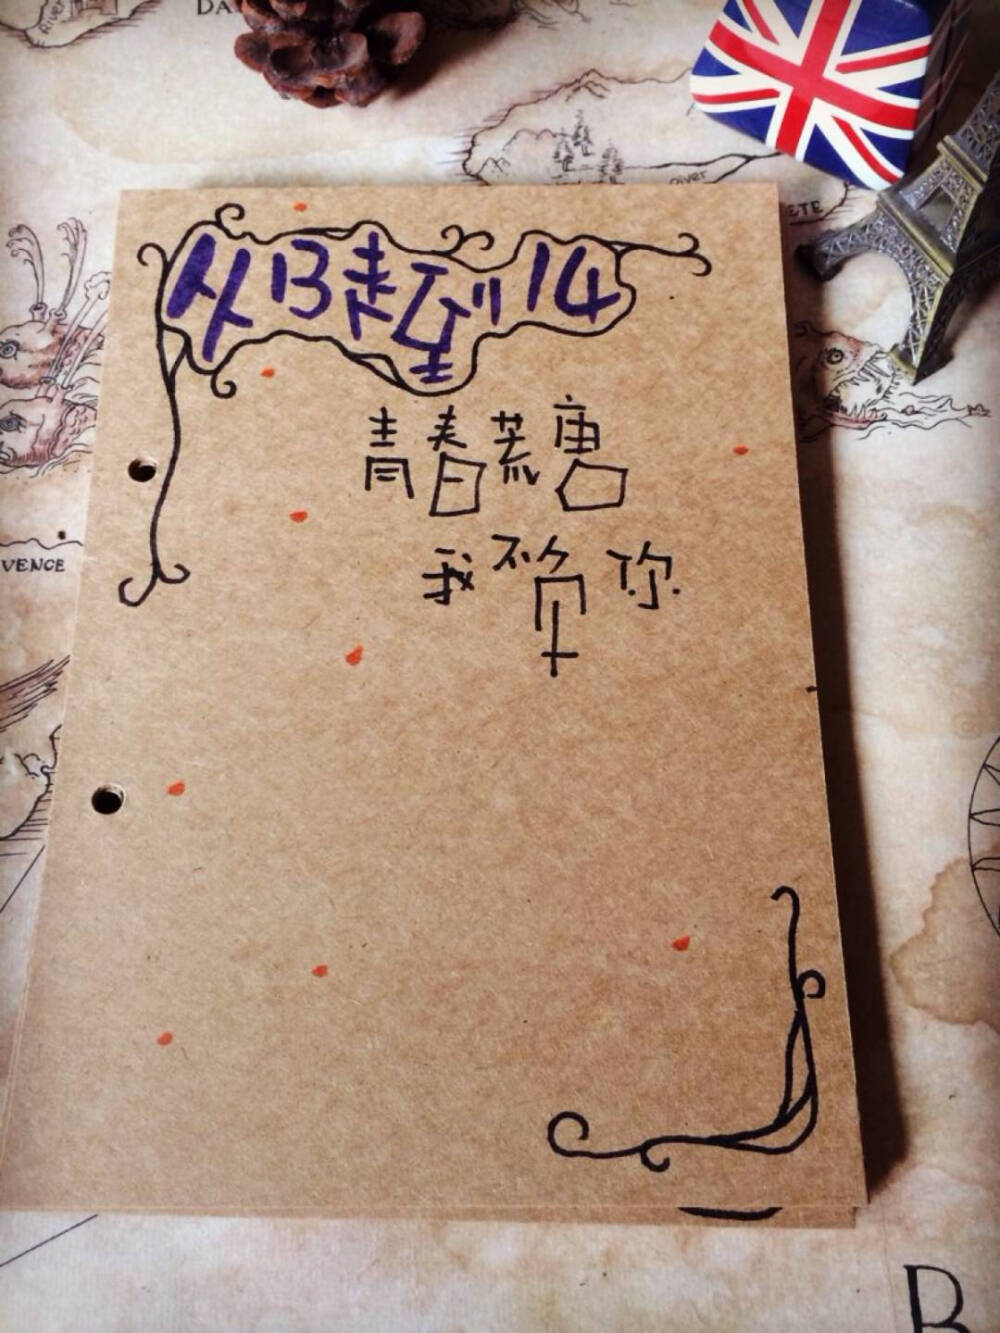 DA
River
river
ETE
从13走到14
青春荒唐
我不负你
VENCE
B